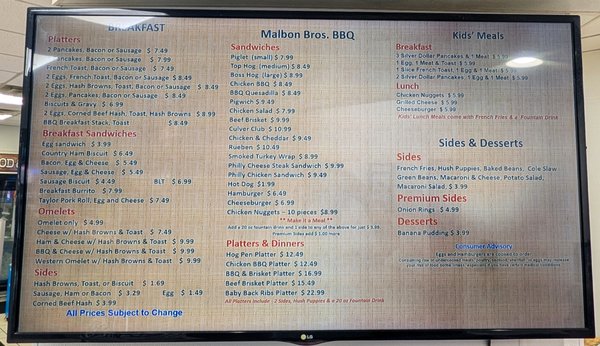 BREAKFAST
Platters
2 Pancakes, Bacon or Sausage $ 7.49
Pancakes, Bacon or Sausage $ 7.99
French Toast, Bacon or Sausage $ 7.49
2 Eggs, French Toast, Bacon or Sausage $ 8.49
2 Eggs, Hash Browns, Toast, Bacon or Sausage $ 8.49
2 Eggs, Pancakes, Bacon or Sausage $ 8.49
Biscuits & Gravy $ 6.99
2 Eggs, Corned Beef Hash, Toast, Hash Browns $ 8.99
BBQ Breakfast Stack, Toast $ 8.49
Breakfast Sandwiches
Egg sandwich $ 3.99
Country Ham Biscuit $ 6.49
Bacon, Egg & Cheese $ 5.49
Sausage, Egg & Cheese $ 5.49
Sausage Biscuit $ 4.49 BLT $ 6.99
Breakfast Burrito $ 7.99
Taylor Pork Roll, Egg and Cheese $ 7.49
Omelets
Omelet only $ 4.99
Cheese w/ Hash Browns & Toast $ 7.49
Ham & Cheese w/ Hash Browns & Toast $ 9.99
BBQ & Cheese w/ Hash Browns & Toast $ 9.99
Western Omelet w/ Hash Browns & Toast $ 9.99
Sides
Hash Browns, Toast, or Biscuit $ 1.69
Sausage, Ham or Bacon $ 3.29 Egg $ 1.49
Corned Beef Hash $ 3.99
All Prices Subject to Change
Malbon Bros. BBQ
Sandwiches
Piglet (small) $ 7.99
Top Hog (medium) $ 8.49
Boss Hog (large) $ 8.99
Chicken BBQ $ 8.49
BBQ Quesadilla $ 8.49
Pigwich $ 9.49
Chicken Salad $ 7.99
Beef Brisket $ 9.99
Culver Club $ 10.99
Chicken & Cheddar $ 9.49
Rueben $ 10.49
Smoked Turkey Wrap $ 8.99
Philly Cheese Steak Sandwich $ 9.99
Philly Chicken Sandwich $ 8.49
Hot Dog $1.99
Hamburger $ 6.49
Cheeseburger $ 6.99
Chicken Nuggets – 10 pieces $8.99
** Make it a Meal **
Add a 20 oz fountain drink and 1 side to any of the above for just $ 3.99
Premium Sides add $ 1.00 more
Platters & Dinners
Hog Pen Platter $ 12.49
Chicken BBQ Platter $ 12.49
BBQ & Brisket Platter $ 16.99
Beef Brisket Platter $ 15.49
Baby Back Ribs Platter $ 22.99
All Platters Include - 2 Sides, Hush Puppies & a 20 oz Fountain Drink
Kids' Meals
Breakfast
3 Silver Dollar Pancakes & 1 Meat $ 5.99
1 Egg, 1 Meat & Toast $ 5.99
1 Slice French Toast, 1 Egg & 1 Meat $ 5.99
2 Silver Dollar Pancakes 1 Egg & 1 Meat $ 5.99
Lunch
Chicken Nuggets $ 5.99
Grilled Cheese $ 5.99
Cheeseburger $ 5.99
Kids' Lunch Meals come with French Fries & a Fountain Drink
Sides & Desserts
Sides
French Fries, Hush Puppies, Baked Beans, Cole Slaw
Green Beans, Macaroni & Cheese, Potato Salad,
Macaroni Salad, $ 3.99
Premium Sides
Onion Rings $ 4.99
Desserts
Banana Pudding $ 3.99
Consumer Advisory
Eggs and Hamburgers are cooked to order.
Consuming raw or undercooked meats, poultry, seafood, shellfish or eggs may increase
your risk of food borne illness, especially if you have certain medical conditions.
LG